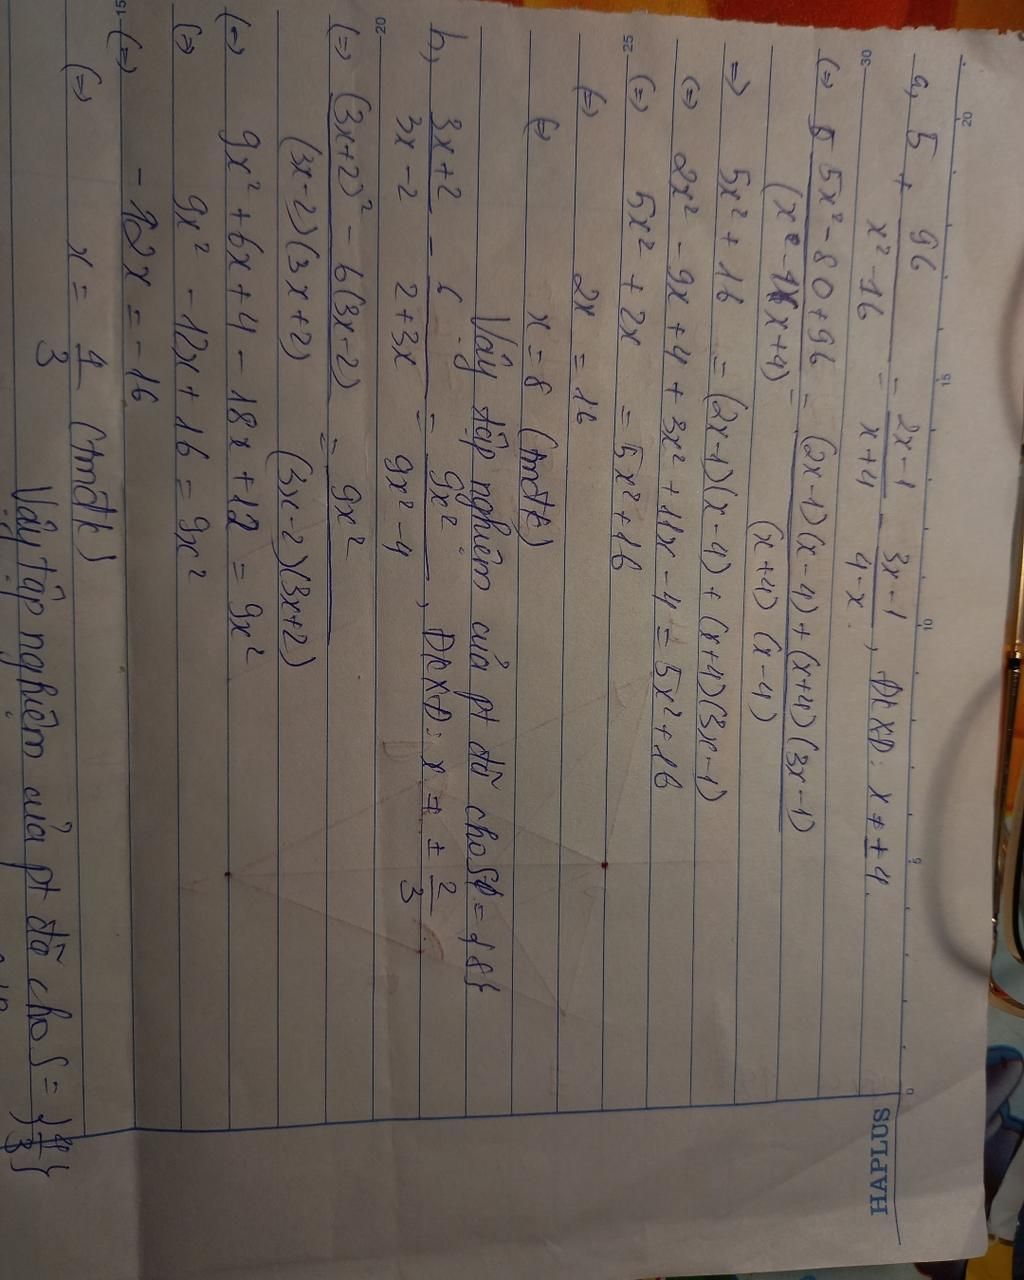 HAPLUS
a, 5 + 96/(x² - 16) = (2x - 1)/(x + 4) - (3x - 1)/(4 - x), ĐKXĐ: x ≠ ± 4
(=) (5x² - 80 + 96)/((x - 4)(x + 4)) = ((2x - 1)(x - 4) + (x + 4)(3x - 1))/((x + 4)(x - 4))
=> 5x² + 16 = (2x - 1)(x - 4) + (x + 4)(3x - 1)
(=) 2x² - 9x + 4 + 3x² + 11x - 4 = 5x² + 16
(=) 5x² + 2x = 5x² + 16
(=) 2x = 16
(=) x = 8 (tmđk)
Vậy tập nghiệm của pt đã cho S = {8}
b, (3x + 2)/(3x - 2) - 6/(2 + 3x) = 9x²/(9x² - 4), ĐKXĐ: x ≠ ± 2/3
(=) ((3x + 2)² - 6(3x - 2))/((3x - 2)(3x + 2)) = 9x²/((3x - 2)(3x + 2))
(=) 9x² + 6x + 4 - 18x + 12 = 9x²
(=) 9x² - 12x + 16 = 9x²
(=) - 12x = - 16
(=) x = 4/3 (tmđk)
Vậy tập nghiệm của pt đã cho S = {4/3}